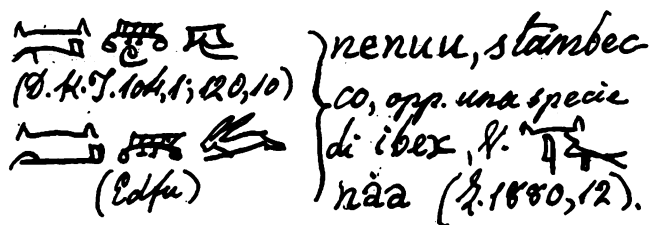 (D.H.I. 104,1; 120,10)
(Edfu)
nenuu, stambec-
co, opp. una specie
di ibex, V.
nàa (Z. 1880, 12).